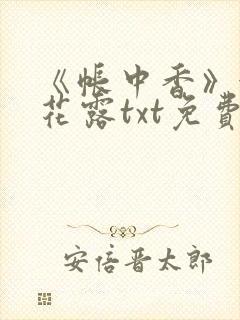 《帐中香》
花露txt免費
安倍晋太郎